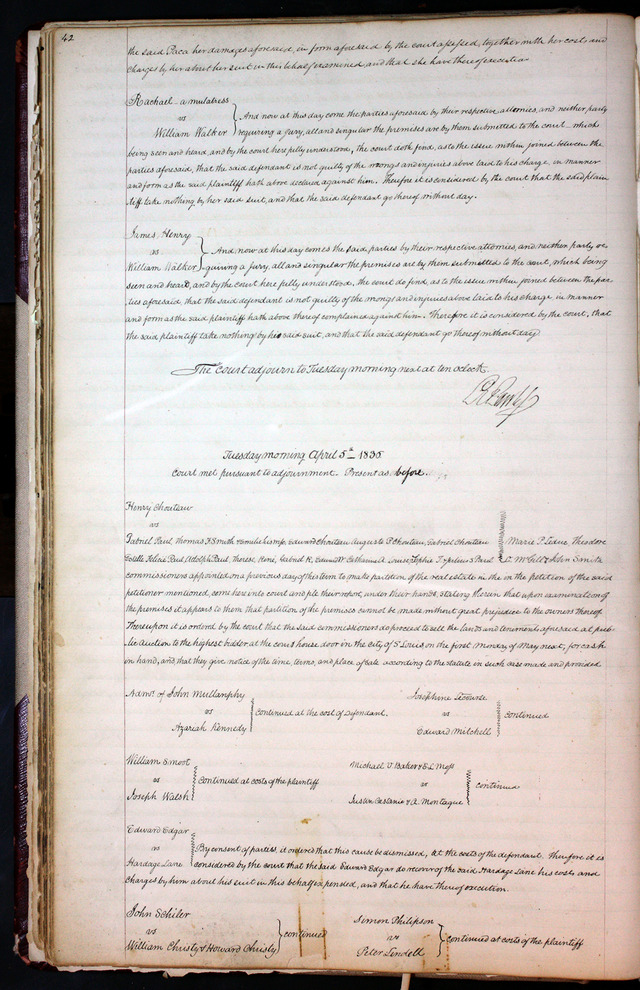 42
the said Paca her damages aforesaid, in form aforesaid by the court assessed, together with her costs and
charges by her about her suit in this behalf expended, and that she have thereof execution.
Rachael - a mulatress
vs
William Walker
And now at this day come the parties aforesaid by their respective attornies, and neither party
requiring a jury, all and singular the premises are by them submitted to the court - which
being seen and heard, and by the court here fully understood, the court doth find, as to the issue within joined between the
parties aforesaid, that the said defendant is not guilty of the wrongs and injuries above laid to his charge, in manner
and form as the said plaintiff hath above declared against him. Therefore it is considered by the court that the said plain
tiff take nothing by her said suit, and that the said defendant go thereof without day.
James Henry
vs
William Walker
And now at this day comes the said parties by their respective attornies, and neither party re
quiring a jury, all and singular the premises are by them submitted to the court, which being
seen and heard, and by the court here fully understood, the court do find, as to the issue within joined between the par
ties aforesaid, that the said defendant is not guilty of the wrongs and injuries above laid to his charge in manner
and form as the said plaintiff hath above thereof complained against him. Therefore it is considered by the court, that
the said plaintiff take nothing by his said suit, and that the said defendant go thereof without day
The court adjourn to Tuesday morning next at ten oclock.
Tuesday morning April 5th 1835
Court met pursuant to adjournment. Present as before.
Henry Chouteau
vs
Gabriel Paul, Thomas F Smith & Emilie his wife, Edward Chouteau Auguste P Chouteau, Gabriel Chouteau
Marie P. Leduc, Theodore
Estelle Paul Adolph Paul, Therese, René, Gabriel R, Edmund W Catharine A Louise Sophie Paul
L. McGill & John Smith
commissioners appointed on a previous day of this term to make partition of the real estate in the in the petition of the said
petitioner mentioned, come here into court and file their report, under their hands, stating therein that upon examination of
the premises it appears to them that partition of the premises cannot be made without great prejudice to the owners thereof
Thereupon it is ordered by the court that the said commissioners do proceed to sell the lands and tenements aforesaid at pub
lic auction to the highest bidder, at the court house door in the city of St Louis, on the first Monday of May next, for cash
in hand, and that they give notice of the time, terms, and place of sale according to the statute in such case made and provided
Admr. of John Mullanphy
vs
Azariah Kennedy
Continued at the cost of Defendant.
Josephine
vs
Edward Mitchell
continued
William Smoot
vs
Joseph Walsh
continued at costs of the plaintiff
Michael J Baker & E L
vs
Justin & A. Montague
continued
Edward Edgar
vs
Hardage Lane
By consent of parties, it ordered that this cause be dismissed, at the costs of the defendant. Therefore it is
considered by the court that the said Edward Edgar do recover of the said Hardage Lane his costs and
charges by him about his suit in this behalf expended, and that he have thereof execution.
John Schiler
vs
William Christy & Howard Christy
continued
Simon Philipson
vs
Peter Lindell
continued at costs of the plaintiff